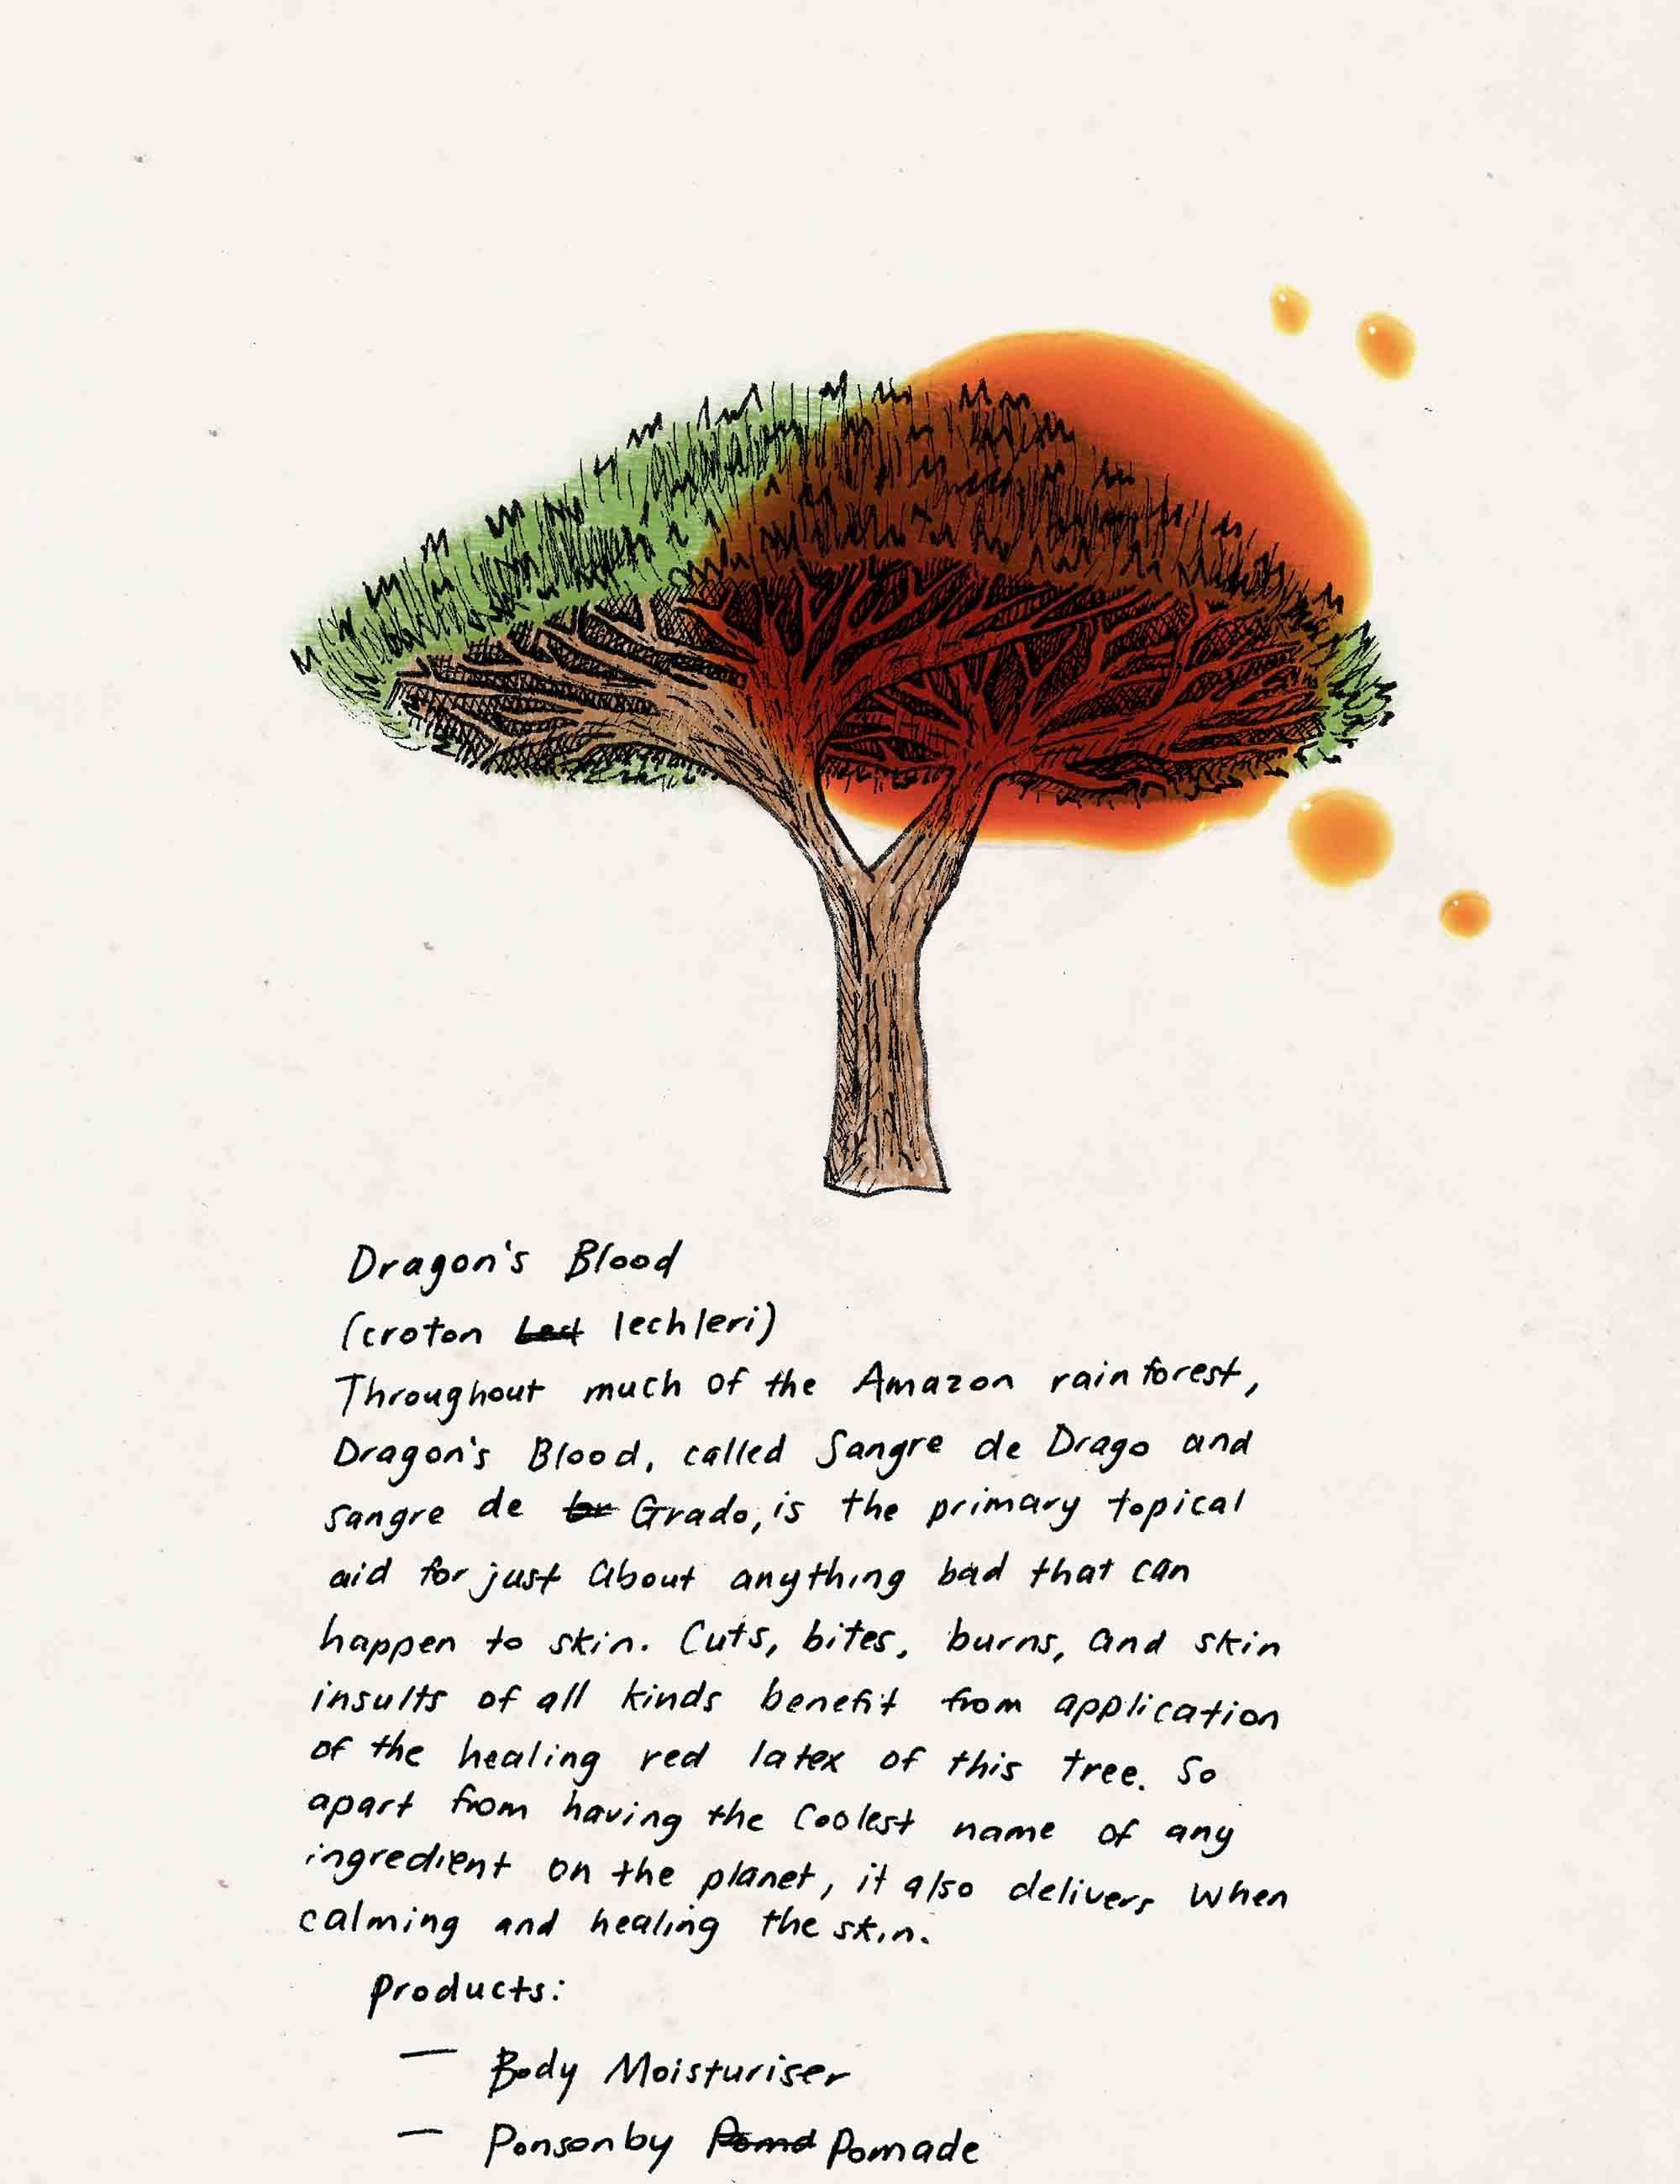 Dragon's Blood
(croton lechleri)
Throughout much of the Amazon rainforest,
Dragon's Blood, called Sangre de Drago and
sangre de Grado, is the primary topical
aid for just about anything bad that can
happen to skin. Cuts, bites, burns, and skin
insults of all kinds benefit from application
of the healing red latex of this tree. So
apart from having the coolest name of any
ingredient on the planet, it also delivers when
calming and healing the skin.
Products:
— Body Moisturiser
— Ponsonby Pomade